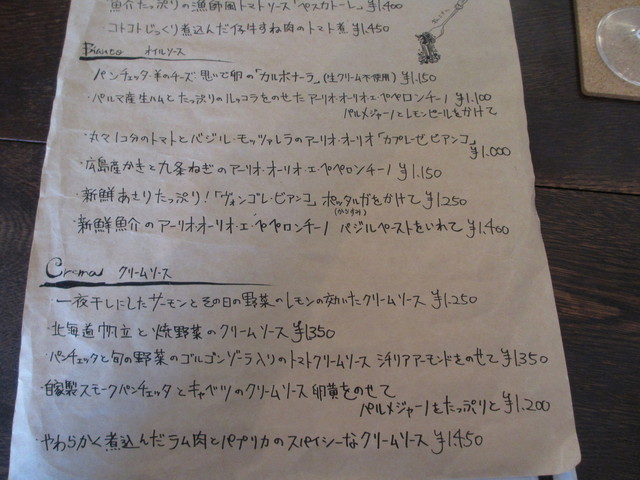 魚介たっぷりの漁師風トマトソース「ペスカトーレ」 ¥1,400
コトコトじっくり煮込んだ仔牛すね肉のトマト煮 ¥1,450
Bianco オイルソース
パンチェッタ・羊のチーズ・思いで卵の「カルボナーラ」(生クリーム不使用) ¥1,150
・パルマ産生ハムとたっぷりのルッコラをのせたアーリオ・オーリオ・エ・ペペロンチーノ ¥1,100
パルメジャーノとレモンピールをかけて
・丸々1コ分のトマトとバジル・モッツァレラのアーリオ・オーリオ「カプレーゼビアンコ」
¥1,000
・広島産かきと九条ねぎのアーリオ・オーリオ・エ・ペペロンチーノ ¥1,150
・新鮮あさりたっぷり!「ヴォンゴレ・ビアンコ」 ボッタルガをかけて ¥1250
(からすみ)
・新鮮魚介のアーリオ・オーリオ・エ・ペペロンチーノ バジルペーストをいれて ¥1,400
Crema クリームソース
・一夜干しにしたサーモンとその日の野菜のレモンの効いたクリームソース ¥1,250
・北海道帆立と焼野菜のクリームソース ¥1350
・パンチェッタと旬の野菜のゴルゴンゾーラ入りのトマトクリームソース シチリアアーモンドをのせて ¥1350
・自家製スモークパンチェッタとキャベツのクリームソース 卵黄をのせて
パルメジャーノをたっぷりと ¥1,200
・やわらかく煮込んだラム肉とパプリカのスパイシーなクリームソース ¥1450